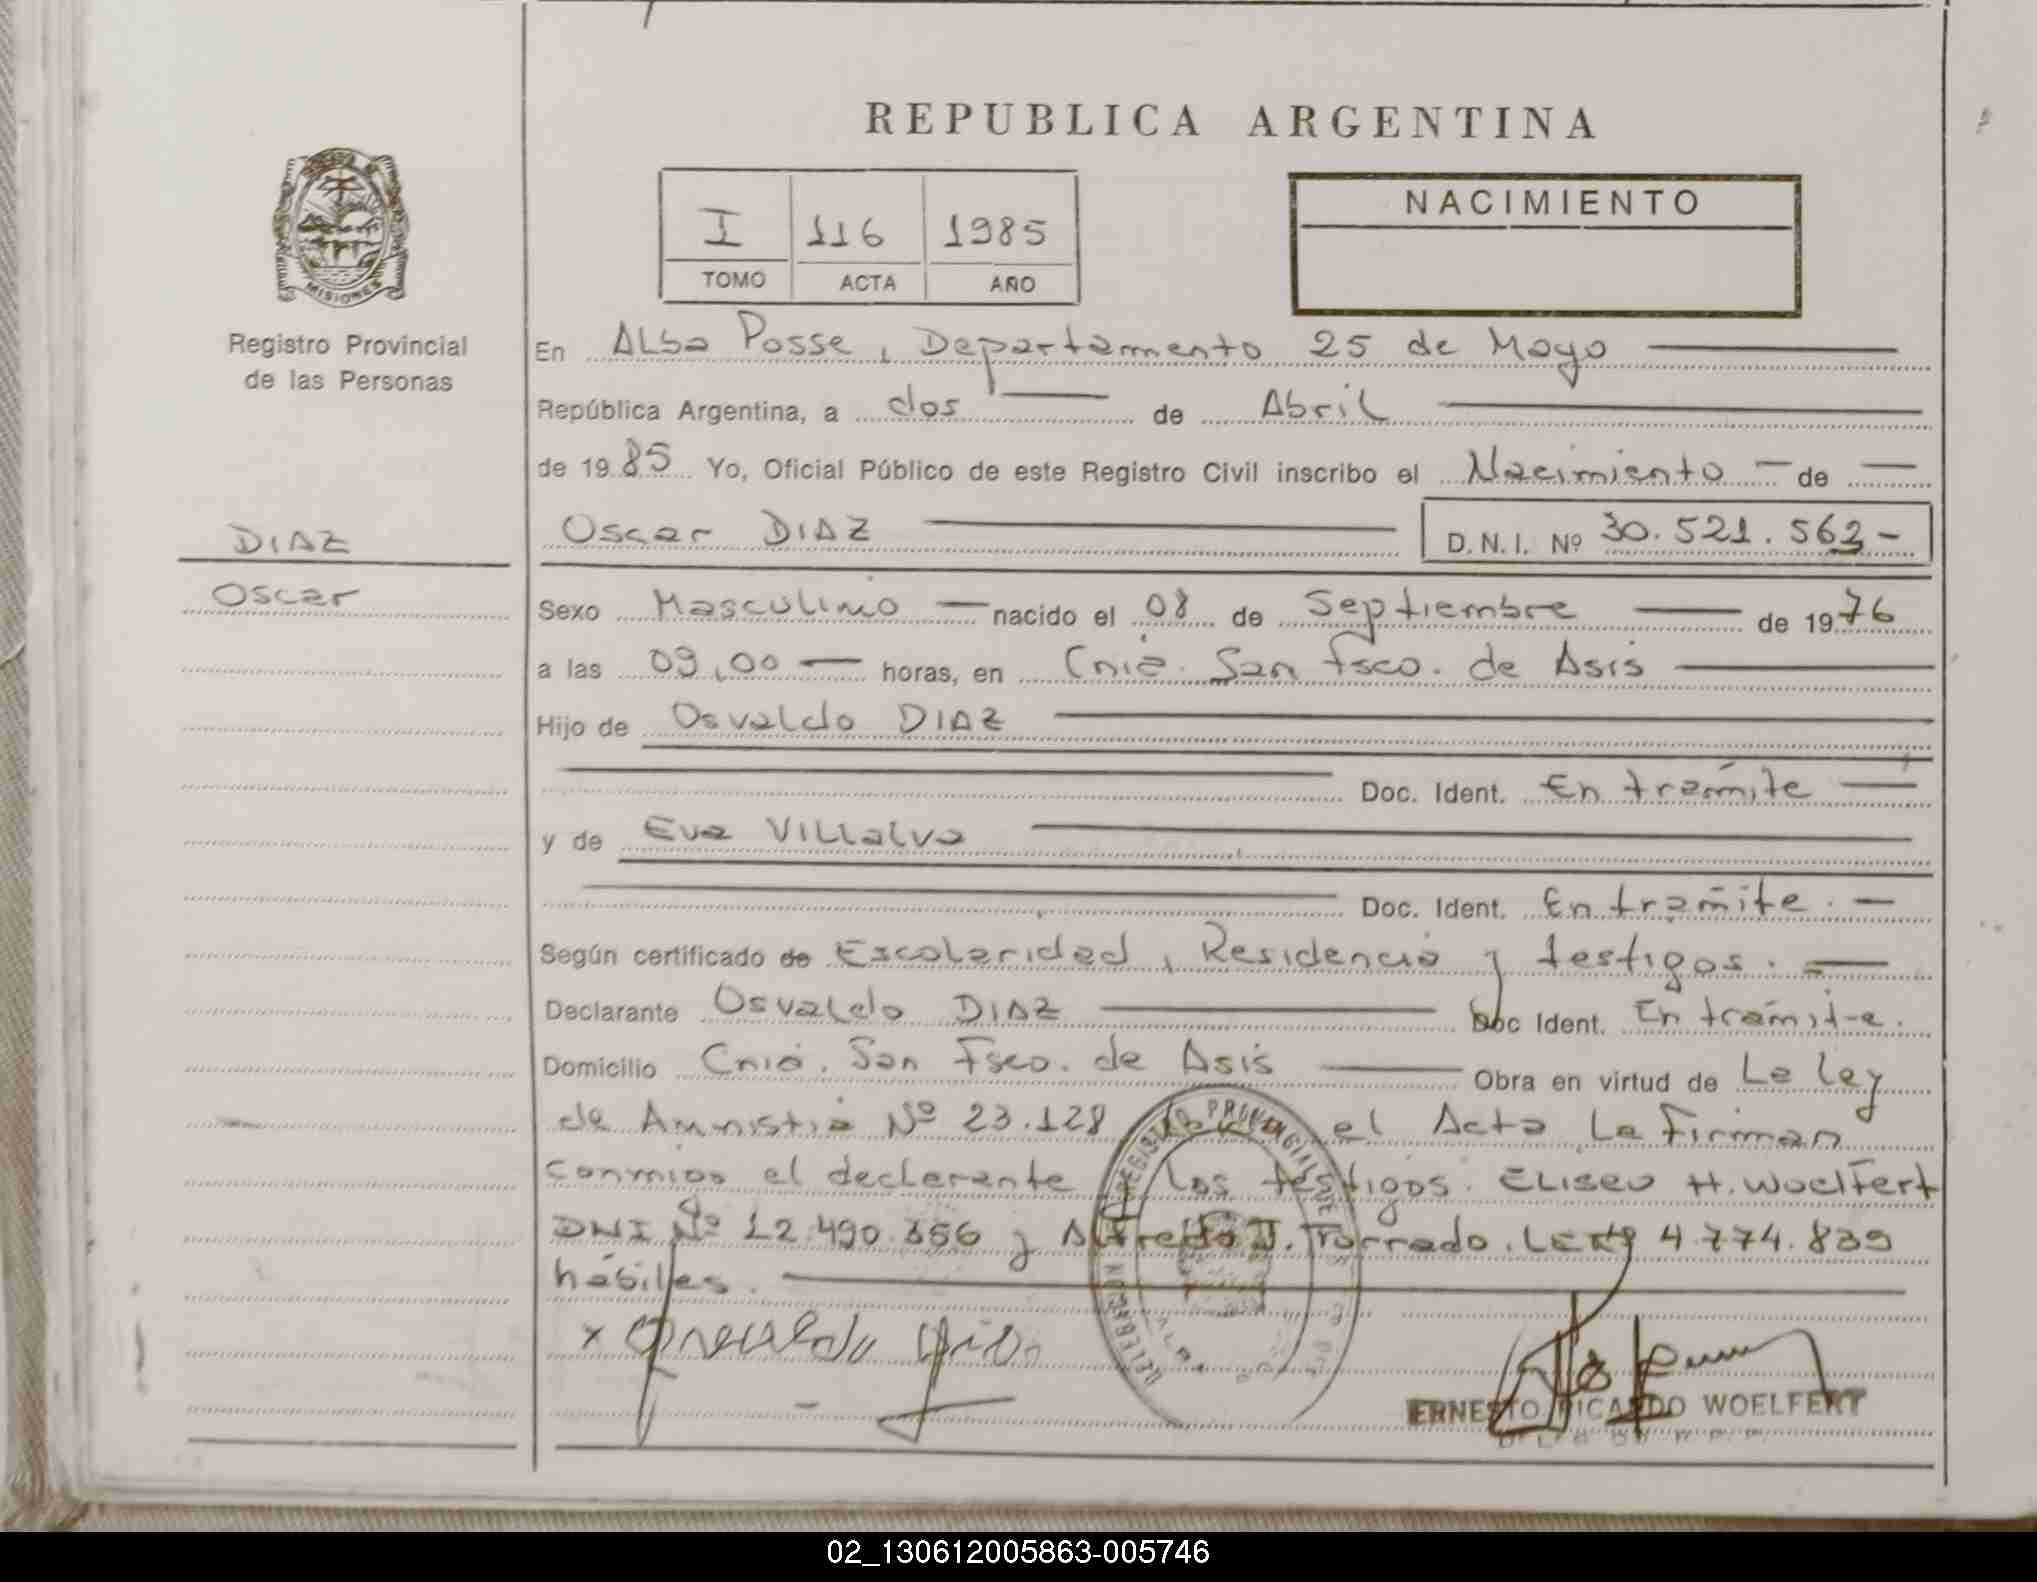 REPUBLICA ARGENTINA
I 116 1985
TOMO ACTA AÑO
NACIMIENTO
MISIONES
Registro Provincial
de las Personas
DIAZ
Oscar
En Alba Posse, Departamento 25 de Mayo
República Argentina, a dos de Abril
de 1985 Yo, Oficial Público de este Registro Civil inscribo el Nacimiento de
Oscar DIAZ D.N.I. Nº 30.521.562-
Sexo Masculino nacido el 08 de Septiembre de 1976
a las 09,00 horas, en Cnia. San Fsco. de Asis
Hijo de Osvaldo DIAZ
Doc. Ident. En tramite
y de Eva Villalva
Doc. Ident. En tramite.
Según certificado de Escolaridad, Residencia y testigos.
Declarante Osvaldo DIAZ Doc Ident. En tramite.
Domicilio Cnia. San Fsco. de Asis Obra en virtud de La ley
de Amnistia Nº 23.128 el Acta La Firman
conmigo el declarante los testigos. Eliseo H. Woelfert
DNI Nº 12.490.356 y Alfredo J. Torrado. LE Nº 4.774.839
hábiles.
ERNESTO RICARDO WOELFERT
02_130612005863-005746